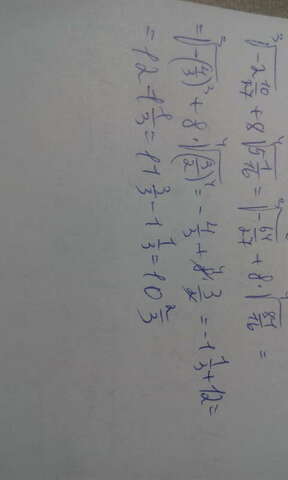 ∛(-2 10/27) + 8 ∜(5 1/16) = ∛(-64/27) + 8 · ∜(81/16) =
= ∛(-(4/3)³) + 8 · ∜((3/2)⁴) = -4/3 + 8 · 3/2 = -1 1/3 + 12 =
= 12 - 1 1/3 = 11 3/3 - 1 1/3 = 10 2/3